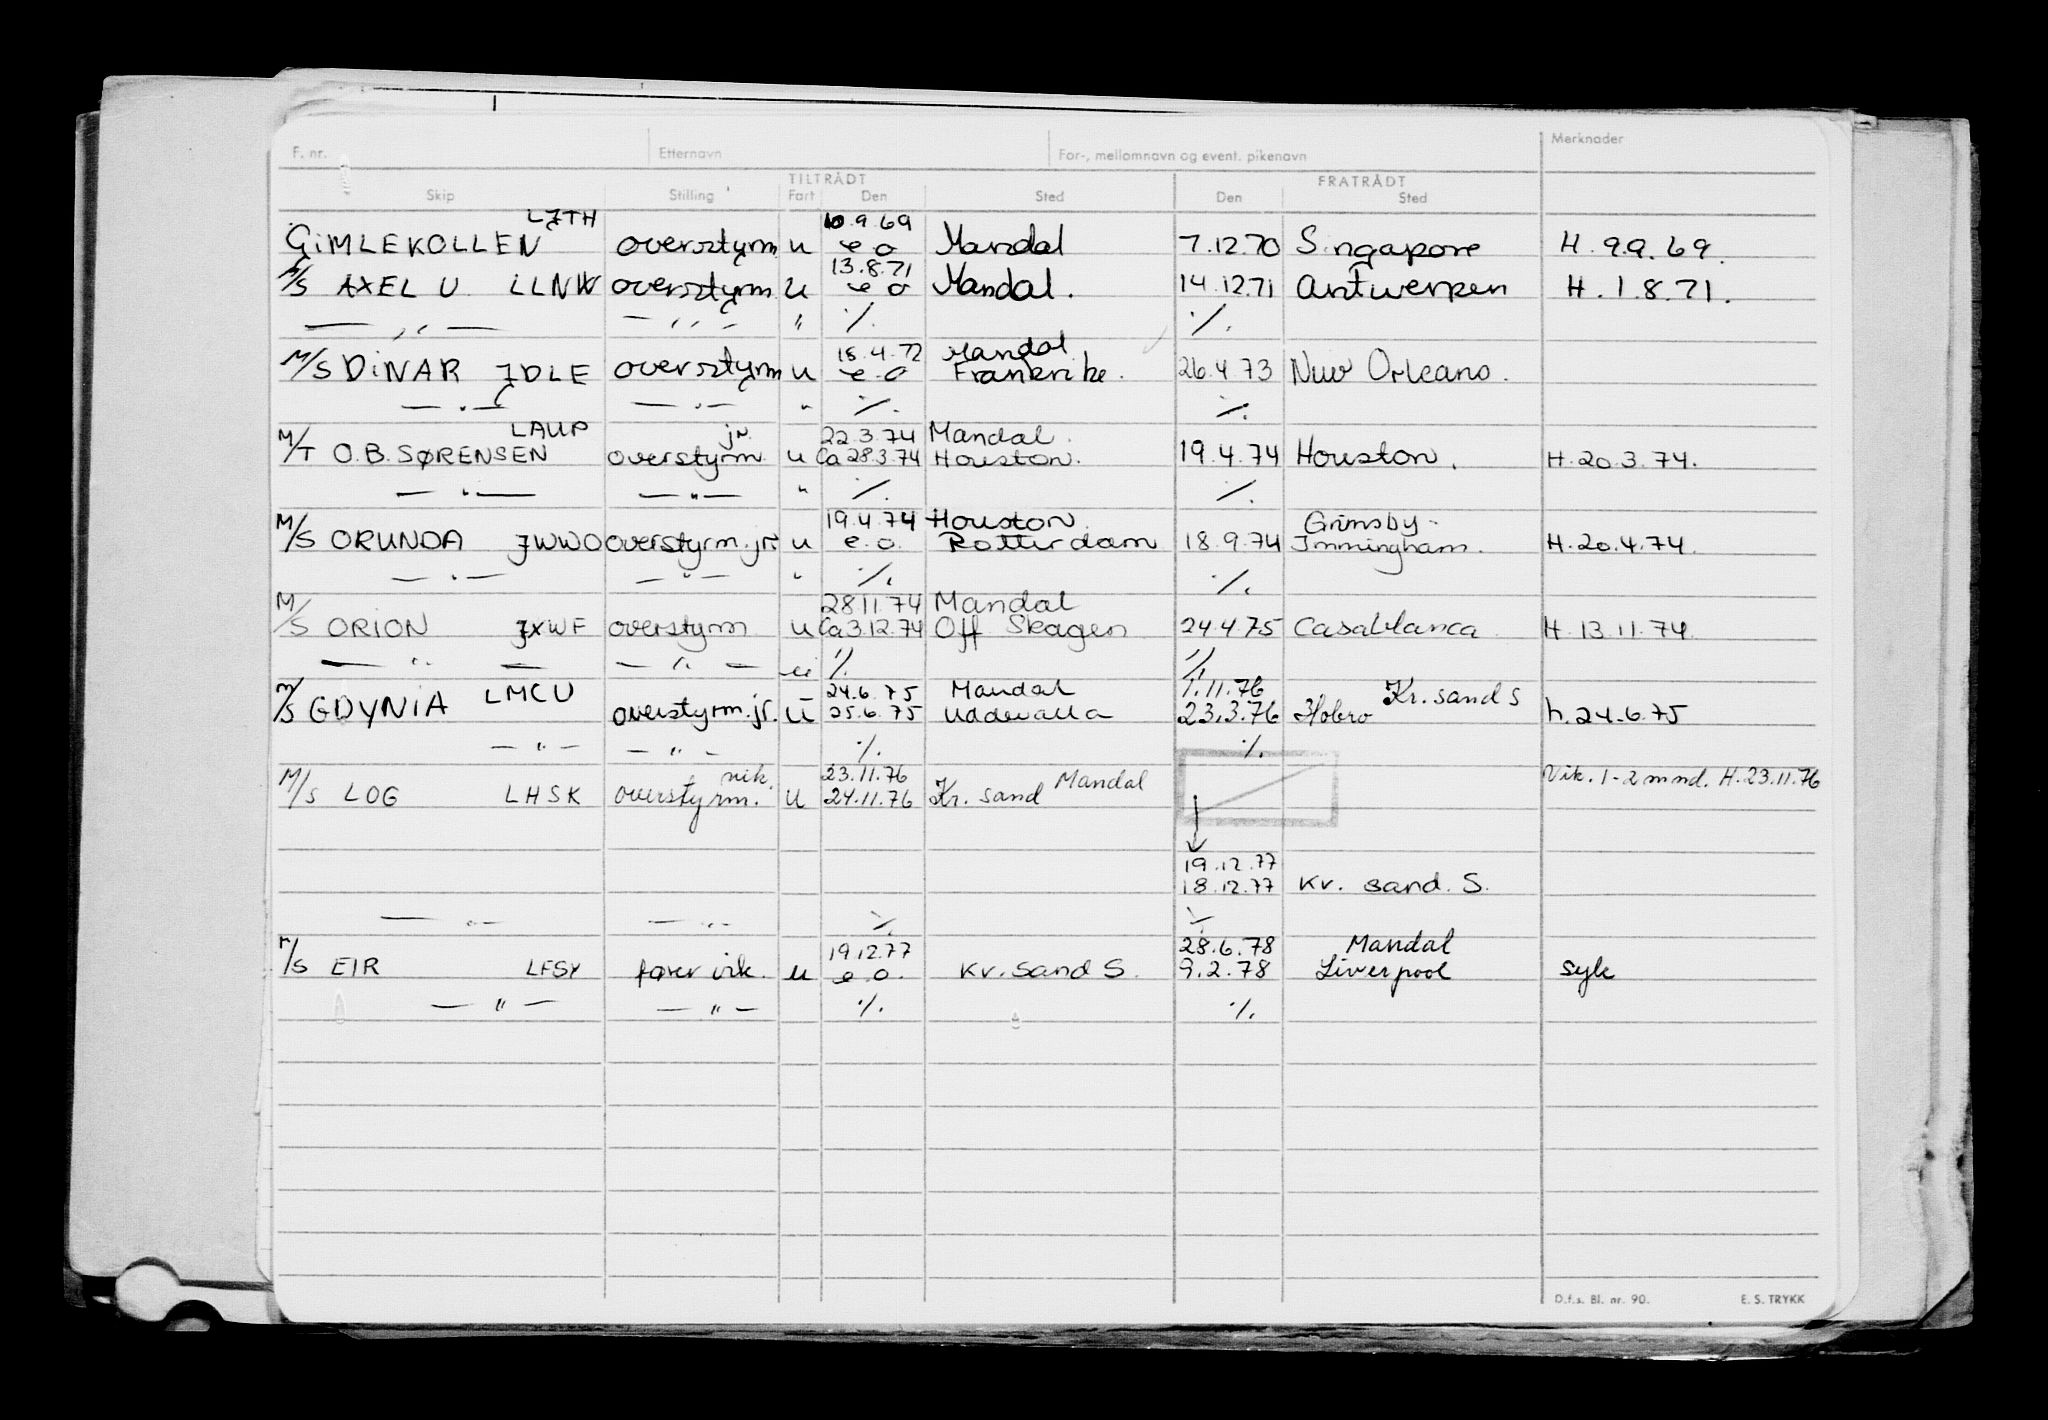 F. nr. Etternavn For-, mellomnavn og event. pikenavn Merknader
TILTRÅDT FRATRÅDT
Skip Stilling Fart Den Sted Den Sted
LJTH 10.9.69
GIMLEKOLLEN overstyrm u e o Mandal 7.12.70 Singapore H. 9.9.69.
13.8.71
M/S AXEL U LLNW overstyrm u e o Mandal. 14.12.71 Antwerpen H. 1.8.71.
— ,, — — ,, — " ·/. ·/.
15.4.72 Mandal
M/S DINAR JDLE overstyrm u e o Frankrike. 26.4.73 New Orleans.
— " — — " — " ·/. ·/.
LAUP jr. 22.3.74 Mandal.
M/T O.B. SØRENSEN overstyrm u Ca 28.3.74 Houston. 19.4.74 Houston. H. 20.3.74.
— " — — " — " ·/. ·/.
19.4.74 Houston Grimsby-
M/S ORUNDA JWWO overstyrm. jr. u e.o. Rotterdam 18.9.74 Immingham. H. 20.4.74.
— " — — " — " ·/. ·/.
28.11.74 Mandal
M/S ORION JXWF overstyrm u Ca 3.12.74 Off Skagen 24.4.75 Casablanca H. 13.11.74.
— " — — " — u ·/. ·/.
LMCU 24.6.75 Mandal 1.11.76 Kr. sand S
M/S GDYNIA overstyrm. jr. u 25.6.75 Uddevalla 23.3.76 Hobro h. 24.6.75
— " — — " — ·/. ·/.
vik. 23.11.76 Mandal Vik. 1-2 mnd. H. 23.11.76
M/S LOG LHSK overstyrm. u 24.11.76 Kr. sand
19.12.77
18.12.77 Kr. sand. S.
— " — — " — ·/. ·/.
19.12.77 28.6.78 Mandal
M/S EIR LFSY fører vik. u e.o. Kr. sand S. 9.2.78 Liverpool syk
— " — — " — ·/. ·/.
D.f.s. Bl. nr. 90. E. S. TRYKK